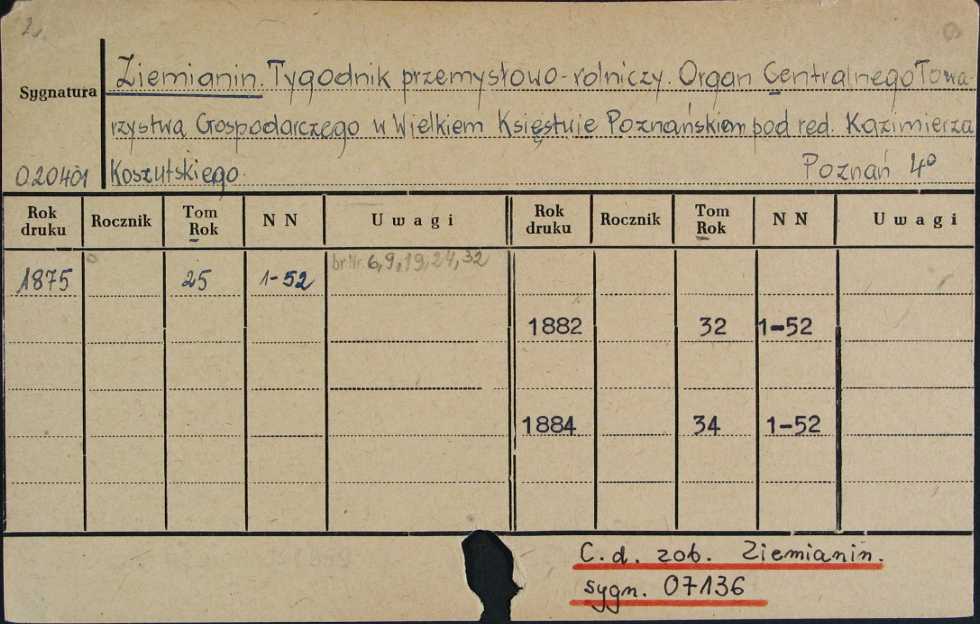 2.
Ziemianin. Tygodnik przemysłowo-rolniczy. Organ Centralnego Towa
Sygnatura
rzystwa Gospodarczego w Wielkiem Księstwie Poznańskiem pod red. Kazimierza
020401 Koszutskiego. Poznań 4°
Rok druku Rocznik Tom Rok N N Uwagi Rok druku Rocznik Tom Rok N N Uwagi
1875 25 1-52 br. Nr. 6, 9, 19, 24, 32
1882 32 1-52
1884 34 1-52
C.d. zob. Ziemianin.
sygn. 07136